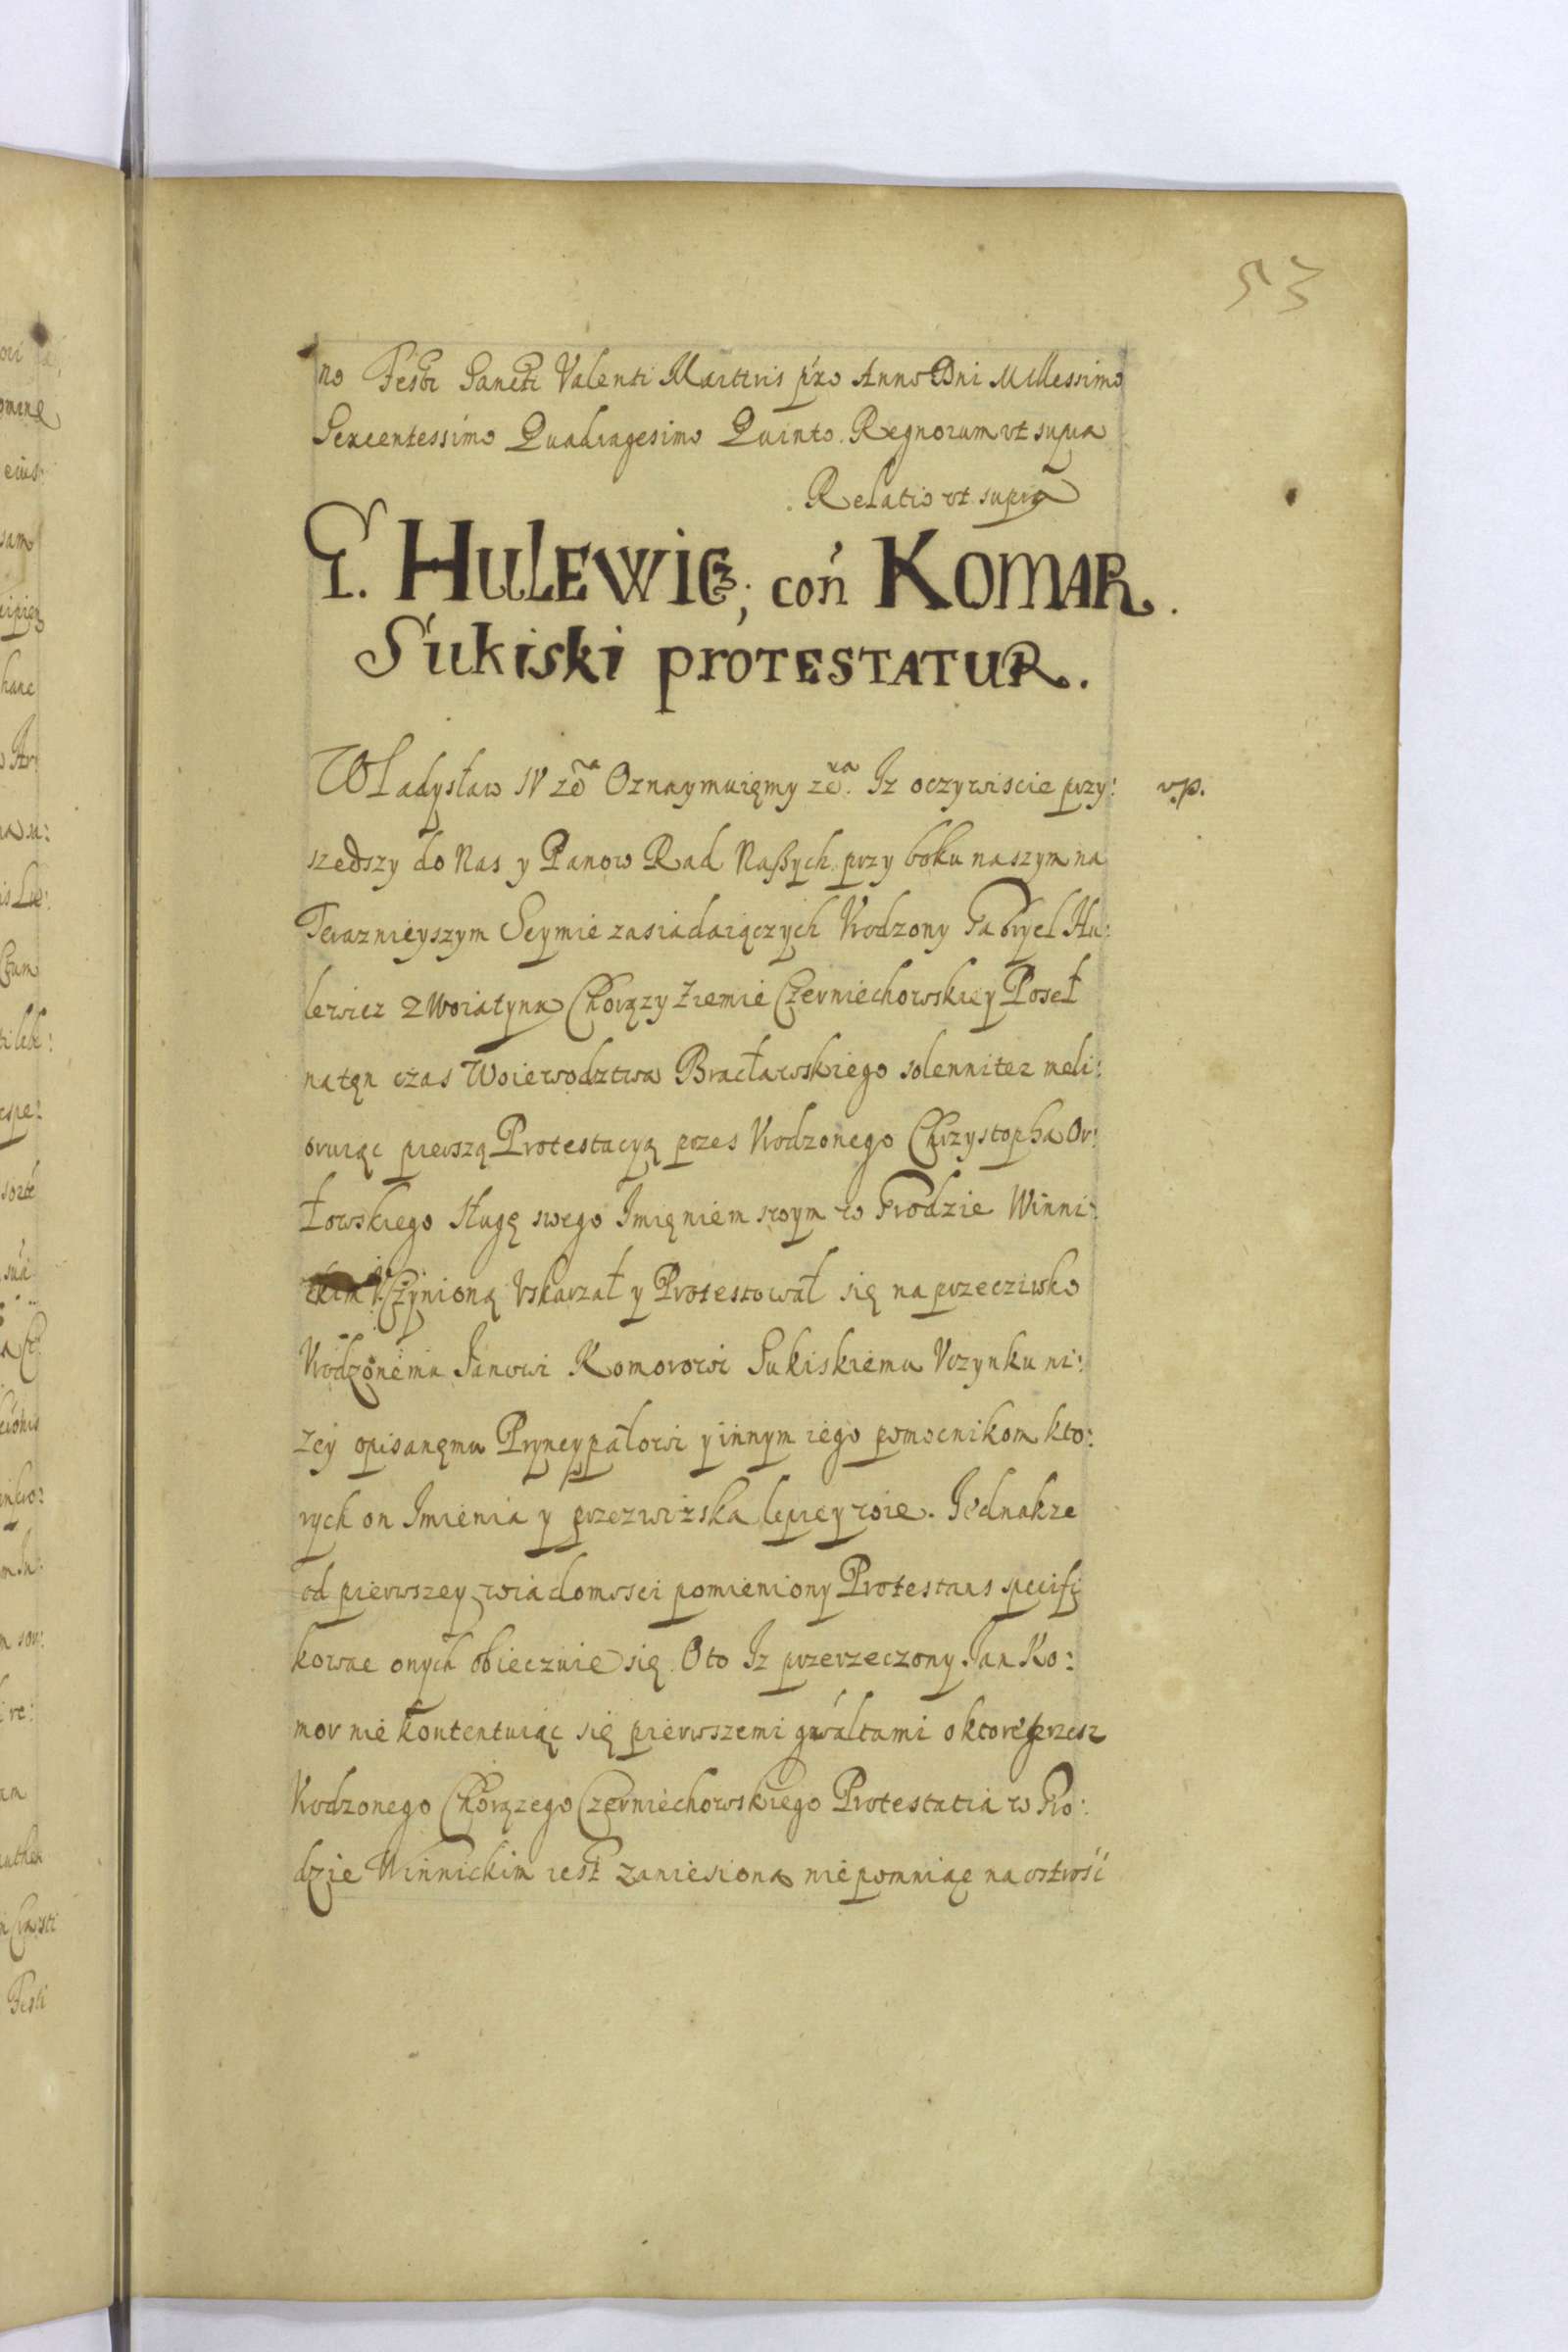 53
no Festi Sancti Valenti Martiris pro Anno Dni Millessimo
Sexcentessimo Quadragesimo Quinto. Regnorum vt supra
Relatio vt supra
G. HULEWICZ, con KOMAR.
Sukiski PROTESTATUR.
Władysław IV Oznaymuięmy Iz oczywiscie przy:
v.p.
szedszy do Nas y Panow Rad Naßych przy boku naszym na
Teraznieyszym Seymie zasiadaiączych Vrodzony Gabryel Hu:
lewicz z Woiatyna Chorązy Ziemie Czerniechowskiey Poseł
na tęn czas Woiewodztwa Bracławskiego solenniter meli:
oruiąc pierszą Protestacyą przes Vrodzonego Chrzystopha Or:
łowskiego sługę swego Imięniem swym w Grodzie Winni:
ckim Vczynioną Vskarzał y Protestował się na przecziwko
Vrodzonemu Janowi Komorowi Sukiskiemu Vczynku ni:
zey opisanęmu Pryncypałowi y innym iego pomocnikom kto:
rych on Imienia y przezwiska lepiey wie. Jednakze
od pierwszey wiadomosci pomieniony Protestans specifi
kowac onych obiecznie się Oto Iz przerzeczony Jan Ko:
mor nie kontentuiąc się pierwszemi gwałtami o ktore przesz
Vrodzonego Chorązego Czerniechowskiego Protestatia w Gro:
dzie Winnickim iest zaniesiona nie pomniąc na ostrość